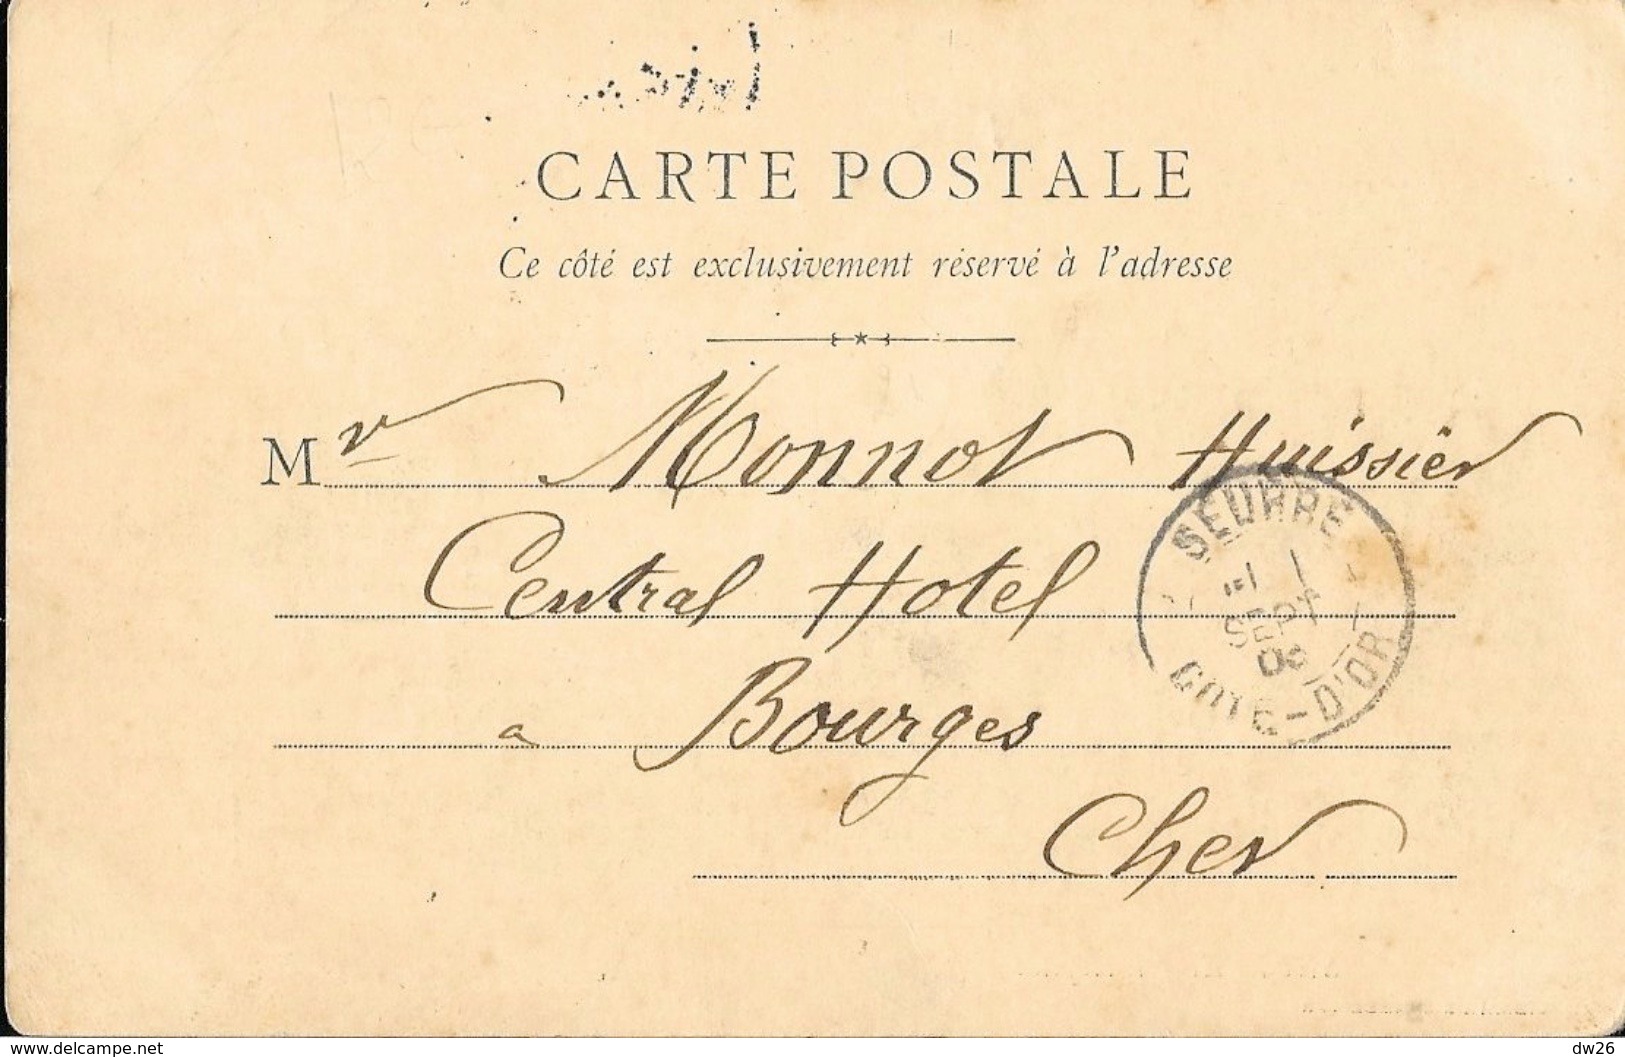 CARTE POSTALE
Ce côté est exclusivement réservé à l'adresse
Mr Monnot Huissier
Central Hotel
a Bourges
Cher
SEURRE
SEPT
CÔTE-D'OR
www.delcampe.net
dw26